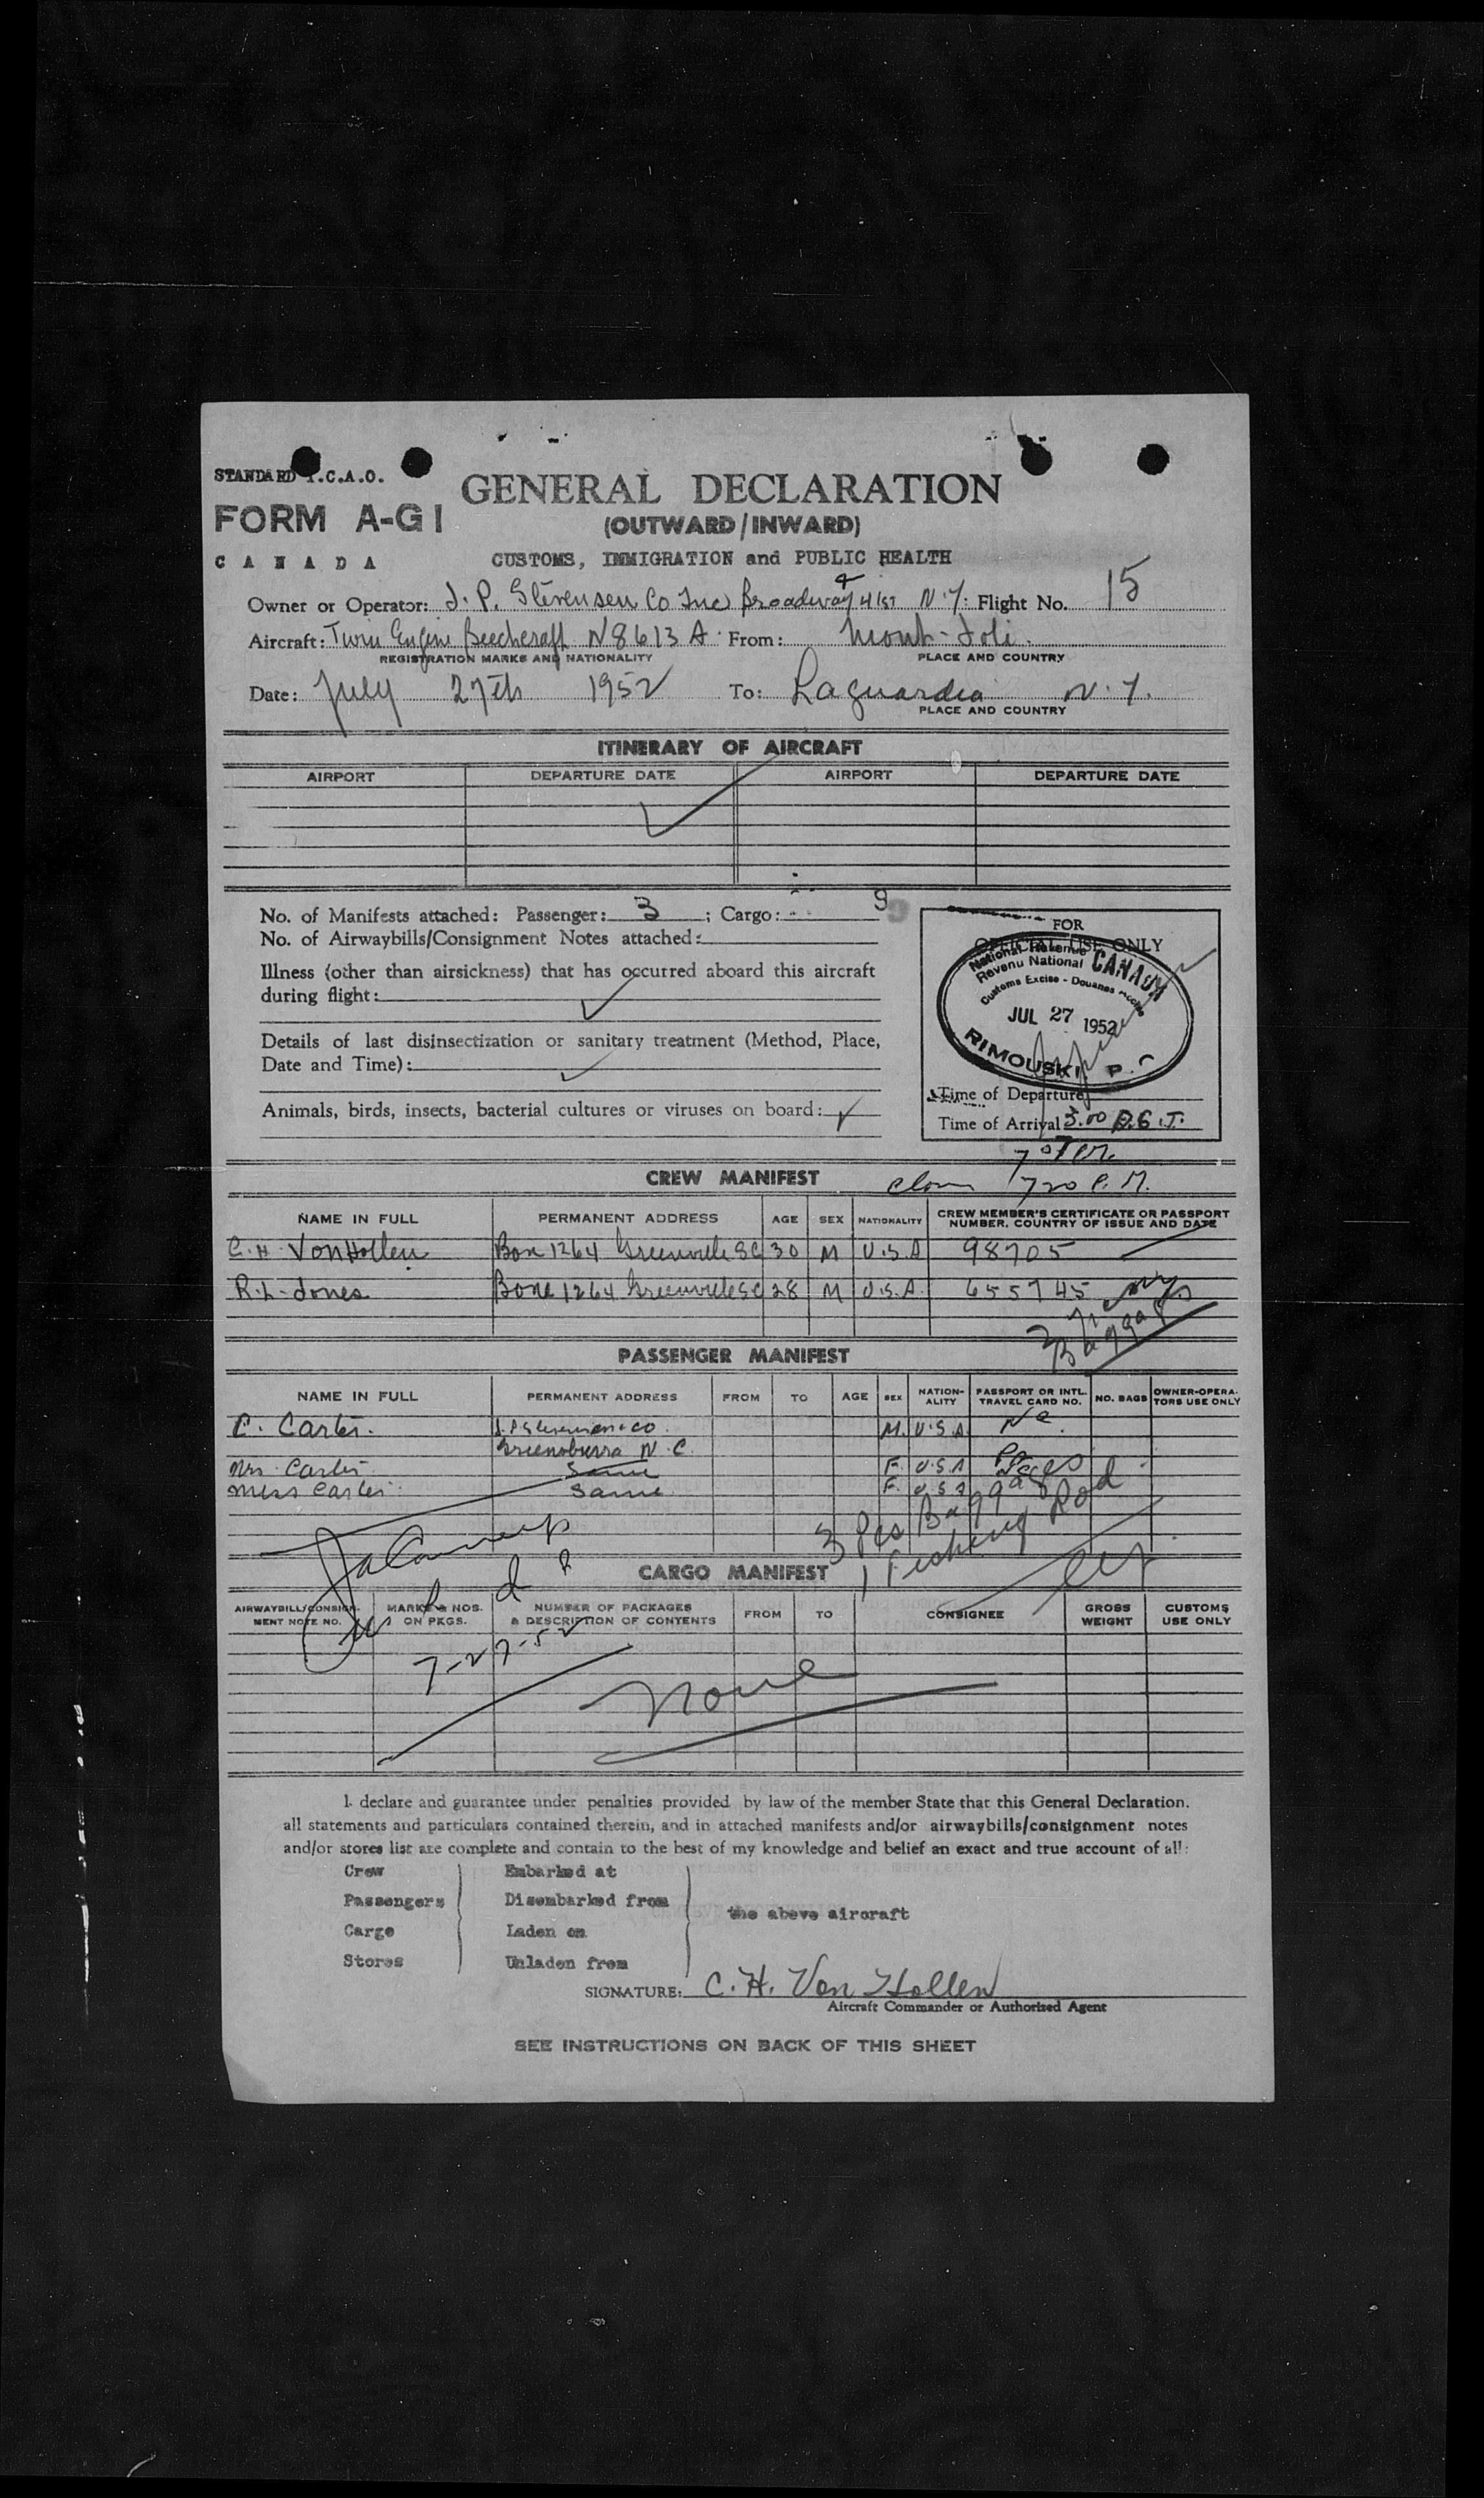 STANDARD I.C.A.O.
FORM A-G1
CANADA
GENERAL DECLARATION
(OUTWARD/INWARD)
CUSTOMS, IMMIGRATION and PUBLIC HEALTH
Owner or Operator: J. P. Stevensen Co Inc Broadway & 41st N.Y. Flight No. 15
Aircraft: Twin Engine Beechcraft N8613A From: Mont-Joli.
REGISTRATION MARKS AND NATIONALITY PLACE AND COUNTRY
Date: July 27th 1952 To: Laguardia N.Y.
PLACE AND COUNTRY
ITINERARY OF AIRCRAFT
AIRPORT DEPARTURE DATE AIRPORT DEPARTURE DATE
No. of Manifests attached: Passenger: 3 ; Cargo: 9
No. of Airwaybills/Consignment Notes attached:
Illness (other than airsickness) that has occurred aboard this aircraft
during flight:
Details of last disinsectization or sanitary treatment (Method, Place,
Date and Time):
Animals, birds, insects, bacterial cultures or viruses on board:
FOR
OFFICIAL USE ONLY
National Revenue CANADA
Revenu National
Customs Excise - Douanes Accise
JUL 27 1952
RIMOUSKI P.
Time of Departure
Time of Arrival 3.00
CREW MANIFEST 720 P.M.
NAME IN FULL PERMANENT ADDRESS AGE SEX NATIONALITY CREW MEMBER'S CERTIFICATE OR PASSPORT
NUMBER, COUNTRY OF ISSUE AND DATE
C. H. Von Hollen Box 1264 Greenville SC 30 M U.S.A 98705
R. L. Jones Box 1264 Greenville SC 28 M U.S.A. 655745
Baggage
PASSENGER MANIFEST
NAME IN FULL PERMANENT ADDRESS FROM TO AGE SEX NATION-ALITY PASSPORT OR INTL. TRAVEL CARD NO. NO. BAGS OWNER-OPERA-TORS USE ONLY
C. Carter. J. P. Stevensen & Co M. U.S.A.
Greensburro N.C.
Mrs. Carter Same F. U.S.A
Miss Carter Same F. U.S.A
3 Pcs Baggages
1 Fishing Rod
CARGO MANIFEST
AIRWAYBILL/CONSIGN-MENT NOTE NO. MARKS & NOS. ON PKGS. NUMBER OF PACKAGES & DESCRIPTION OF CONTENTS FROM TO CONSIGNEE GROSS WEIGHT CUSTOMS USE ONLY
7-27-52
None
I declare and guarantee under penalties provided by law of the member State that this General Declaration,
all statements and particulars contained therein, and in attached manifests and/or airwaybills/consignment notes
and/or stores list are complete and contain to the best of my knowledge and belief an exact and true account of all:
Crew Embarked at
Passengers Disembarked from the above aircraft
Cargo Laden on
Stores Unladen from
SIGNATURE: C. H. Von Hollen
Aircraft Commander or Authorized Agent
SEE INSTRUCTIONS ON BACK OF THIS SHEET